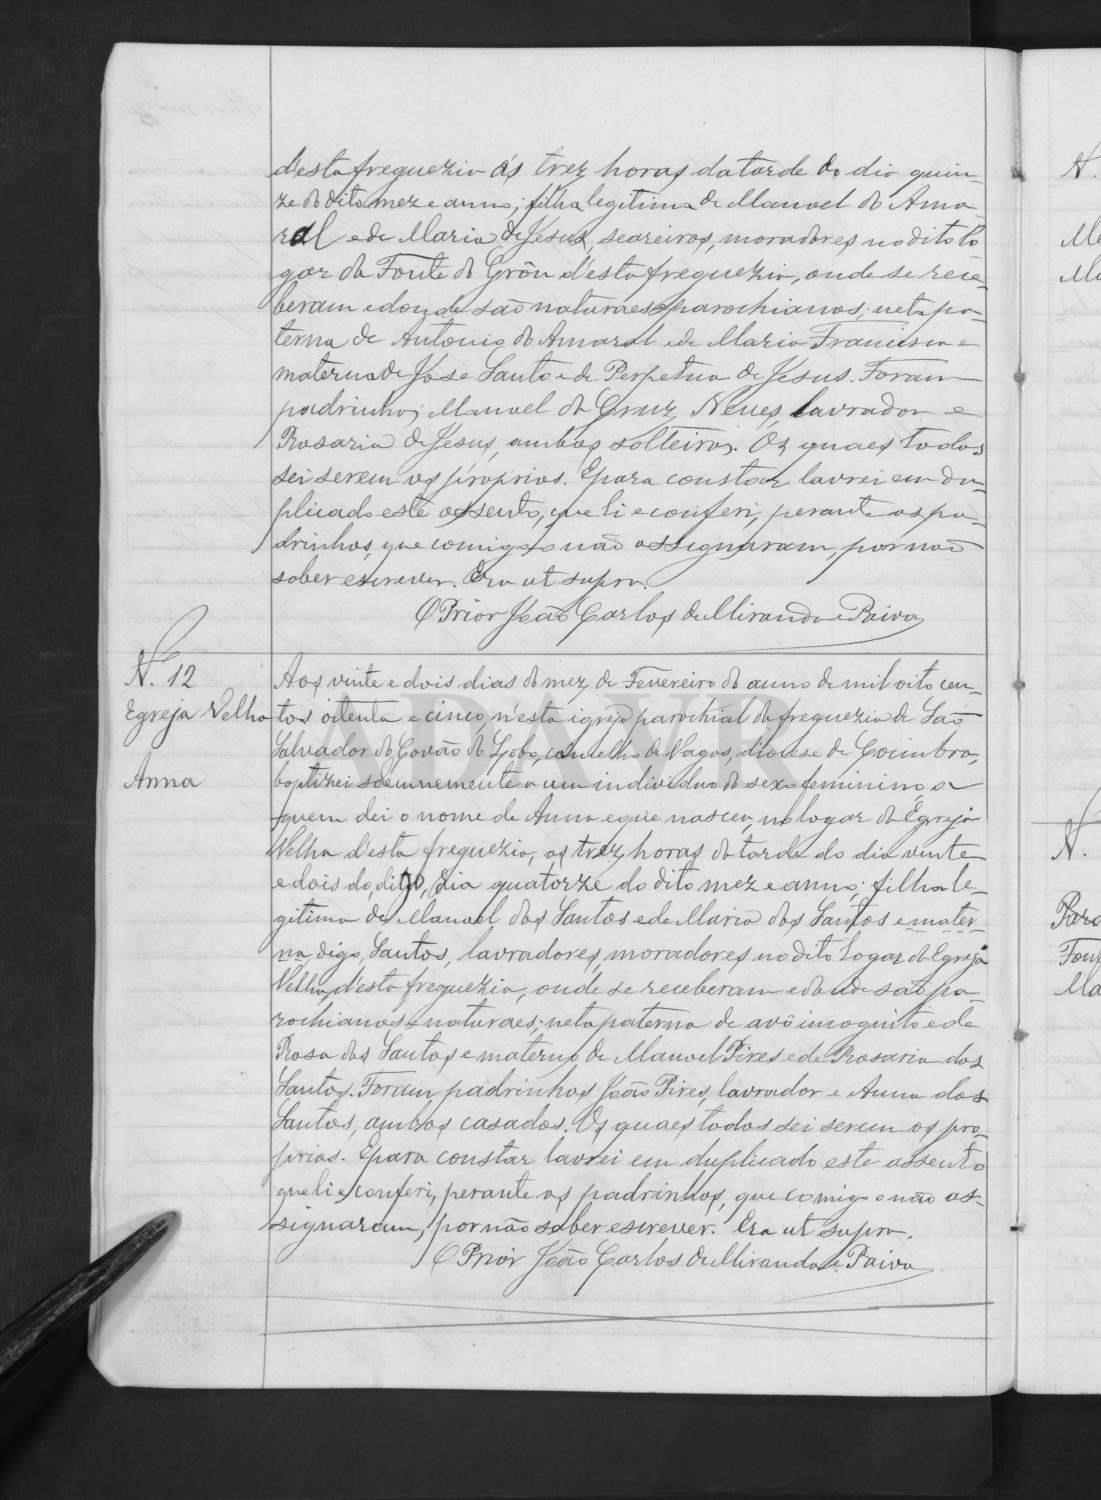 d'esta freguezia ás trez horas da tarde do dia quin-
ze do dito mez e anno; filha legitima de Manoel do Ama-
ral e de Maria de Jesus, seareiros, moradores no dito lo
gar da Fonte do Grôu d'esta freguezia, onde se rece-
beram e donde são naturaes e parochianos; neta pa-
terna de Antonio do Amaral e de Maria Francisca e
materna de José Santo e de Perpetua de Jesus. Foram
padrinhos Manoel da Cruz Neves, lavrador e
Rosaria de Jesus, ambos solteiros. Os quaes todos
sei serem os proprios. E para constar lavrei em du-
plicado este assento, que li e conferi, perante os pa-
drinhos, que comigo não assignaram, por não
saber escrever. Era ut supra.
O Prior João Carlos de Miranda e Paiva
N. 12
Egreja Velha
Anna
Aos vinte e dois dias do mez de Fevereiro do anno de mil oito cen-
tos oitenta e cinco, n'esta igreja parochial da freguezia de São
Salvador do Covão do Lobo, concelho de Vagos, diocese de Coimbra,
baptizei solemnemente a um individuo do sexo feminino, a
quem dei o nome de Anna e que nasceu, no logar da Egreja
Velha d'esta freguezia, ás trez horas da tarde do dia vinte
e dois do dito, dia quatorze do dito mez e anno; filha le-
gitima de Manoel dos Santos e de Maria dos Santos e mater-
na, digo, Santos, lavradores, moradores no dito logar da Egreja
Velha, d'esta freguezia, onde se receberam e donde são pa-
rochianos e naturaes; neta paterna de avô incognito e de
Rosa dos Santos e materna de Manoel Pires e de Rosaria dos
Santos. Foram padrinhos João Pires, lavrador e Anna dos
Santos, ambos casados. Os quaes todos sei serem os pro-
prios. E para constar lavrei em duplicado este assento
que li e conferi, perante os padrinhos, que comigo não as-
signaram, por não saber escrever. Era ut supra.
O Prior João Carlos de Miranda e Paiva
N.
N.